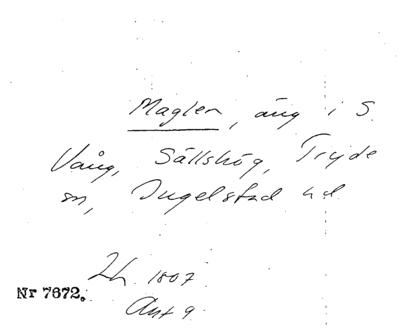 Maglen, äng i S.
Vång, Sällshög, Tryde
sn, Ingelstad hd
Lh. 1807
Akt 9
Nr 7672.